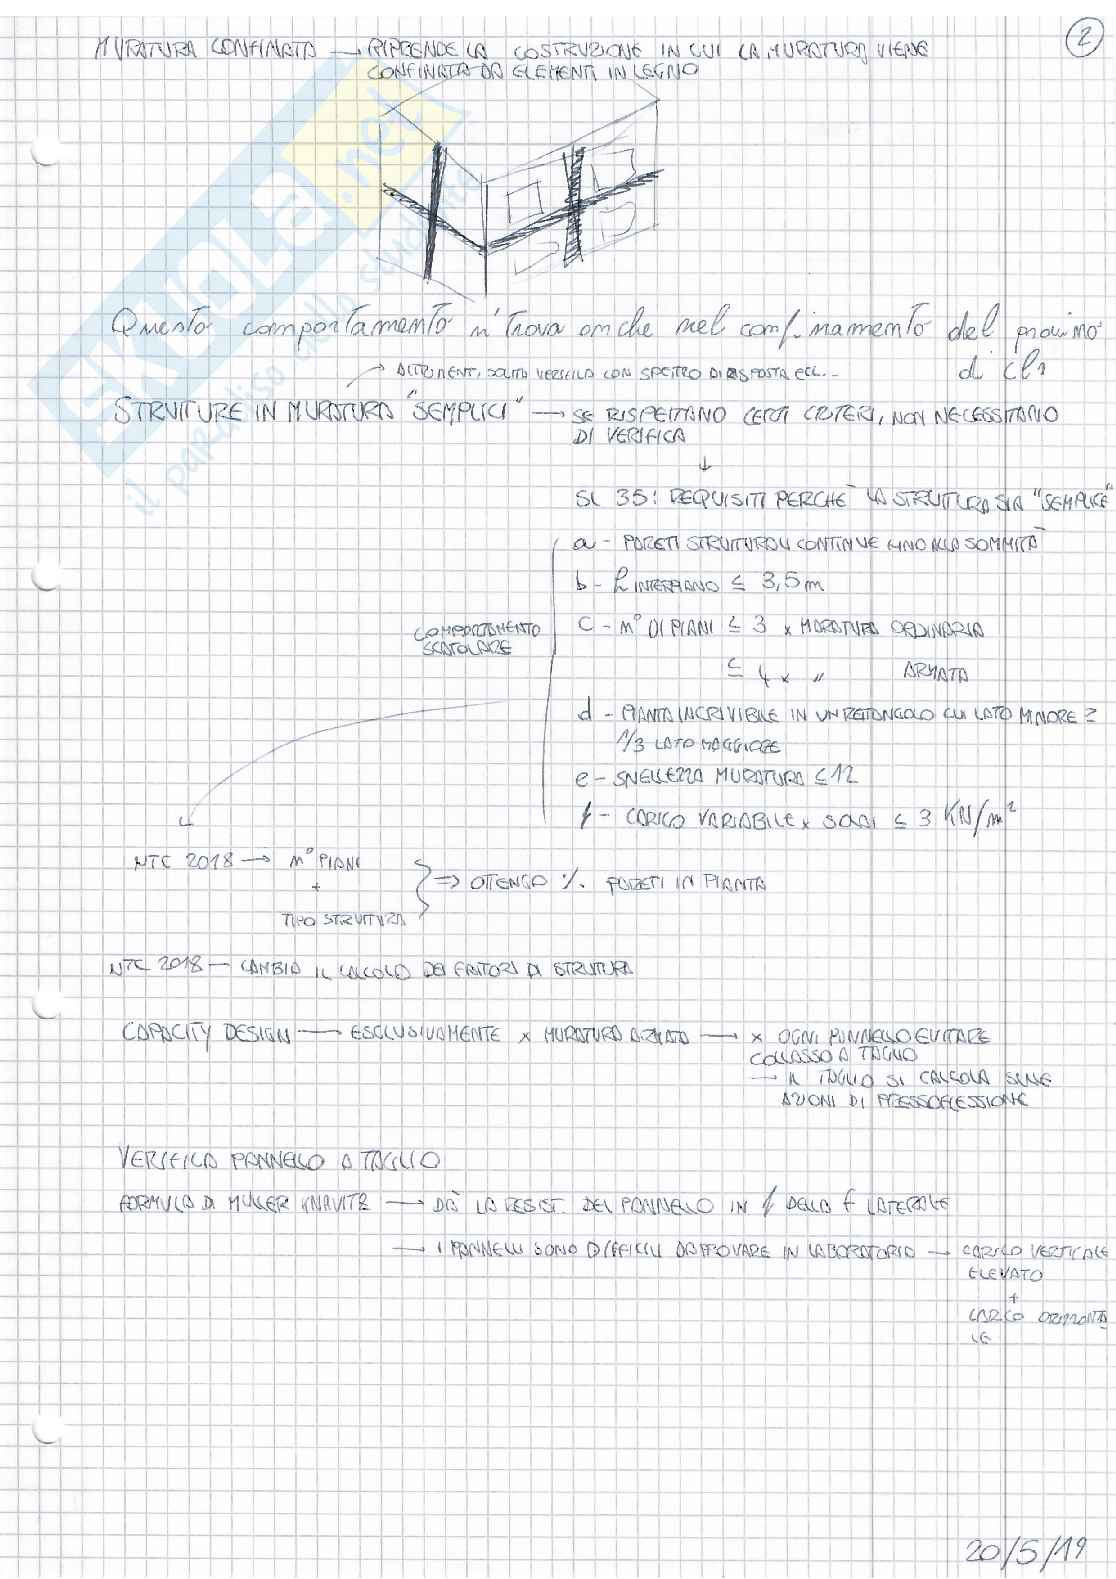 2
MURATURA CONFINATA → RIPRENDE LA COSTRUZIONE IN CUI LA MURATURA VIENE
CONFINATA DA ELEMENTI IN LEGNO
SKUOLA.net
il paradiso dello studente
Questo comportamento si trova anche nel confinamento del provino
di cls
→ ALTRIMENTI, SOLITA VERIFICA CON SPETTRO DI RISPOSTA ECC...
STRUTTURE IN MURATURA "SEMPLICI" → SE RISPETTANO CERTI CRITERI, NON NECESSITANO
DI VERIFICA
↓
SL 35: REQUISITI PERCHE' LA STRUTTURA SIA "SEMPLICE"
a - PARETI STRUTTURALI CONTINUE FINO ALLA SOMMITA'
b - h INTERPIANO ≤ 3,5 m
c - n° DI PIANI ≤ 3 x MURATURA ORDINARIA
COMPORTAMENTO
SCATOLARE
≤ 4 x " ARMATA
d - PIANTA INCRIVIBILE IN UN RETTANGOLO CUI LATO MINORE ≥
1/3 LATO MAGGIORE
e - SNELLEZZA MURATURA ≤ 12
f - CARICO VARIABILE x SOLAI ≤ 3 KN/m²
NTC 2018 → n° PIANI
+
TIPO STRUTTURA
⇒ OTTENGO % PARETI IN PIANTA
NTC 2018 - CAMBIA IL CALCOLO DEI FATTORI DI STRUTTURA
CAPACITY DESIGN → ESCLUSIVAMENTE x MURATURA ARMATA → x OGNI PANNELLO EVITARE
COLLASSO A TAGLIO
→ IL TAGLIO SI CALCOLA SULLE
AZIONI DI PRESSOFLESSIONE
VERIFICA PANNELLO A TAGLIO
FORMULA DI → DÀ LA RESIST. DEL PANNELLO IN f DELLA F LATERALE
→ I PANNELLI SONO DIFFICILI DA PROVARE IN LABORATORIO → CARICO VERTICALE
ELEVATO
+
CARICO ORIZZONTA
LE
20/5/19